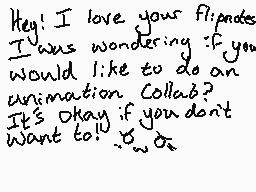 Hey! I love your flipnotes
I was wondering if you
would like to do an
animation collab?
It's okay if you don't
want to!